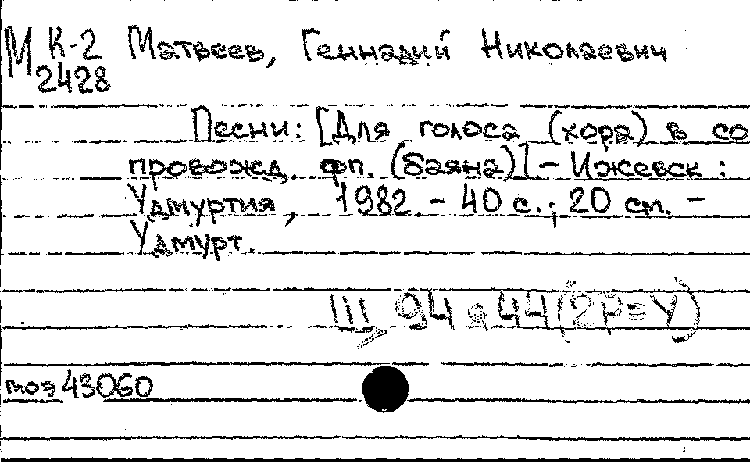 М К-2 Матвеев, Геннадий Николаевич
2428
Песни: [Для голоса (хора) в со
провожд. фп. (баяна)] – Ижевск :
Удмуртия, 1982. – 40 с.; 20 см. –
Удмурт.
III 94 44(2Р=У)
43060